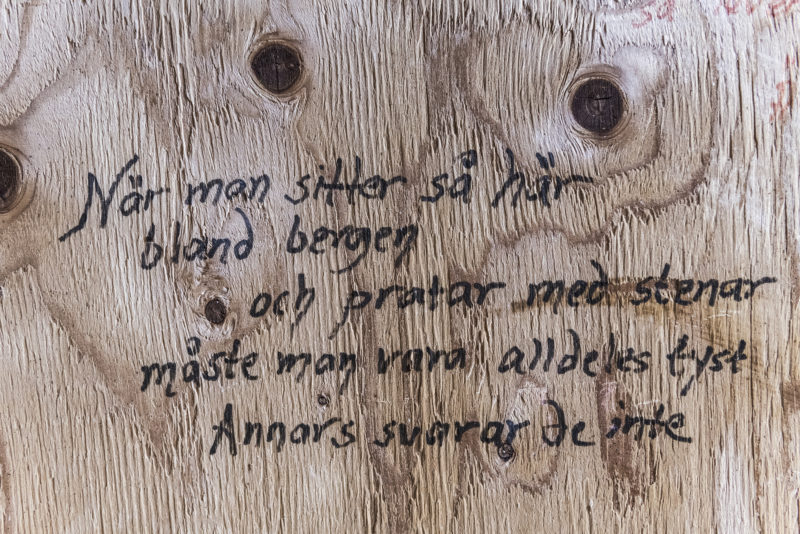 När man sitter så här
bland bergen
och pratar med stenar
måste man vara alldeles tyst
Annars svarar de inte